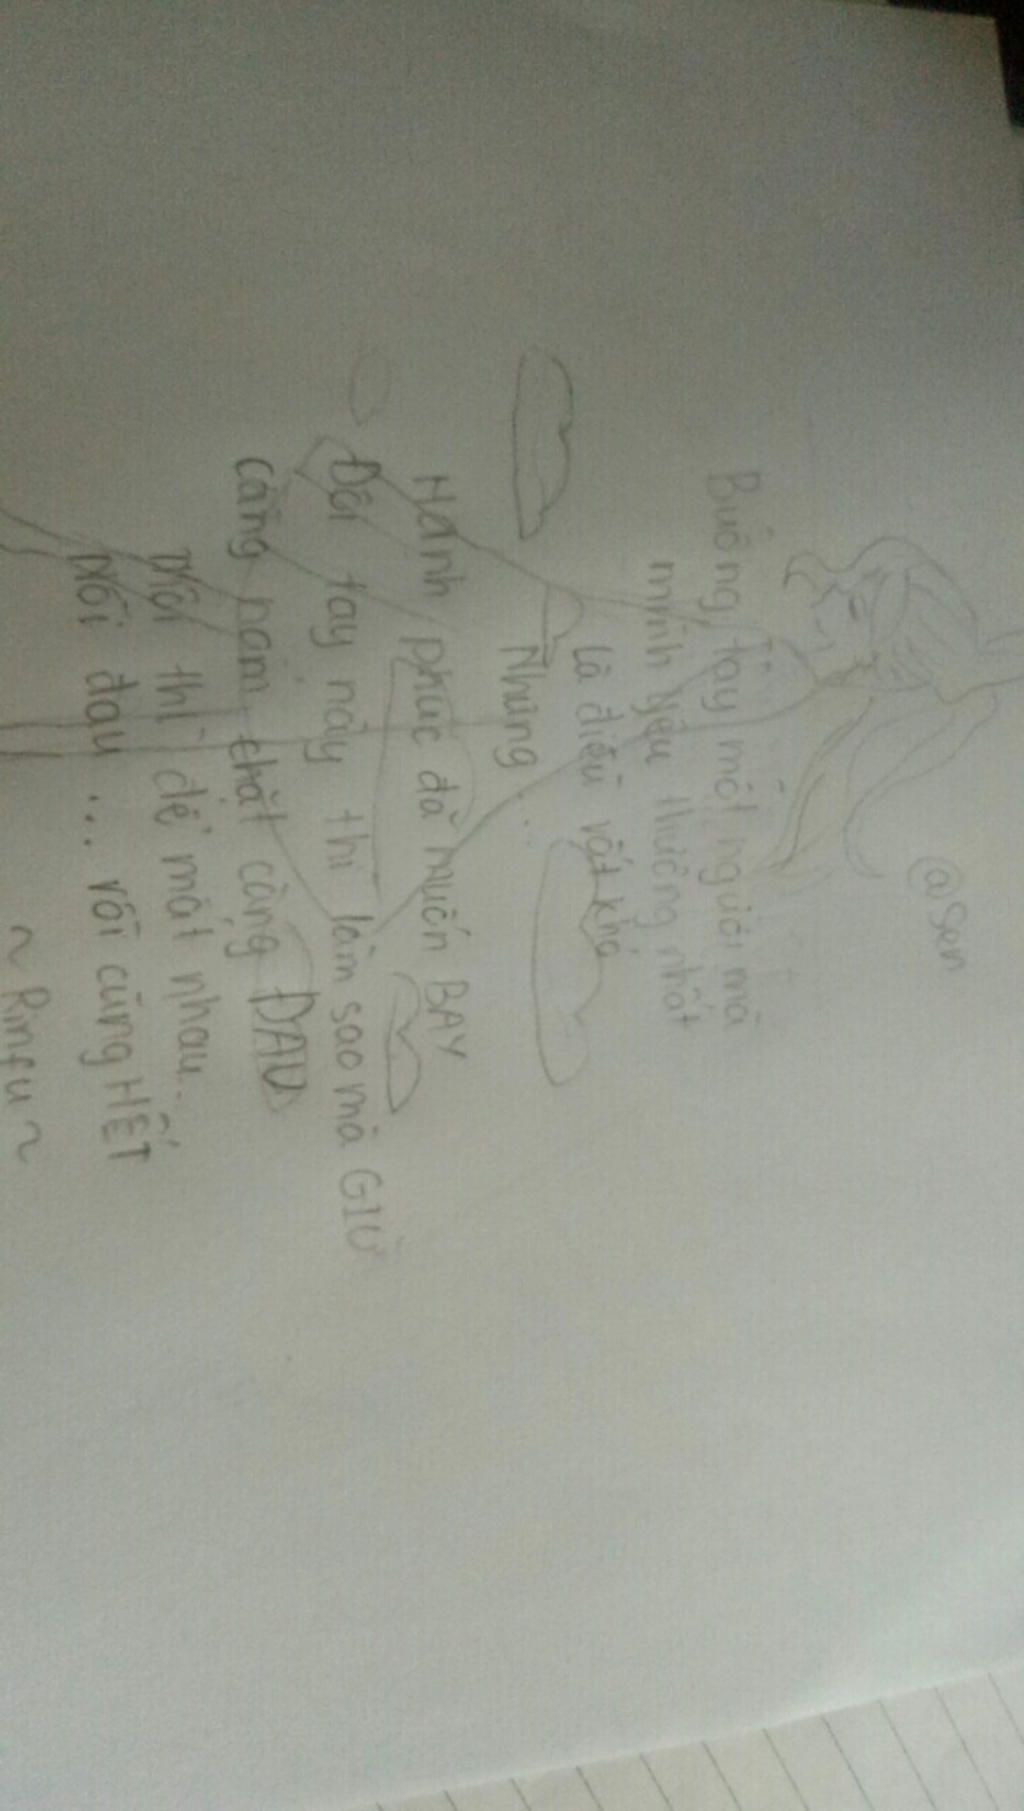 @Sen
Buông tay một người mà
mình yêu thương nhất
Là điều rất khó
Nhưng...
Hạnh phúc đã muốn BAY
Đôi tay này thì làm sao mà GIỮ
Càng nắm chặt càng ĐAU
thì để mất nhau...
đau ... rồi cũng HẾT
~ Rinfu ~